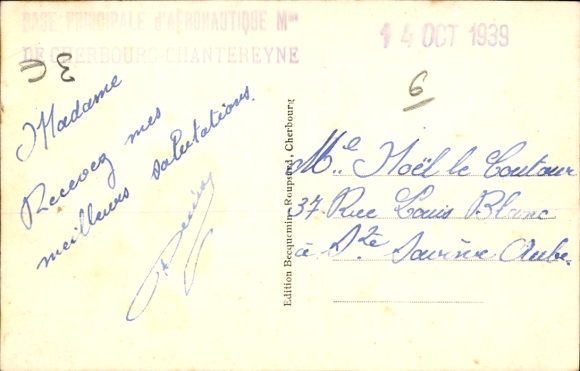 BASE PRINCIPALE d'AÉRONAUTIQUE Mme
DE CHERBOURG-CHANTEREYNE
14 OCT 1939
6
Madame
Recevez mes
meilleurs salutations.
Edition Becquemin-Roupsard, Cherbourg
Me. Noël le Coutour
37 Rue Louis Blanc
à Ste Savine Aube.